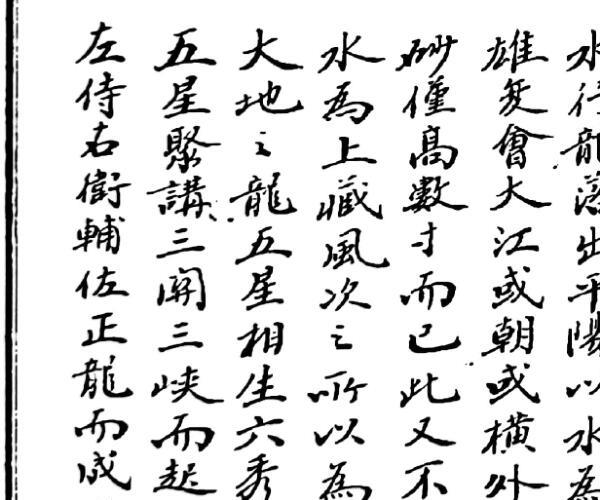 水行龍落出平陽以水為
雄又會大江或朝或橫外
砂僅高數寸而已此又不
水為上藏風次之所以為
大地之龍五星相生六秀
五星聚講三關三峽而起
左侍右衛輔佐正龍而成